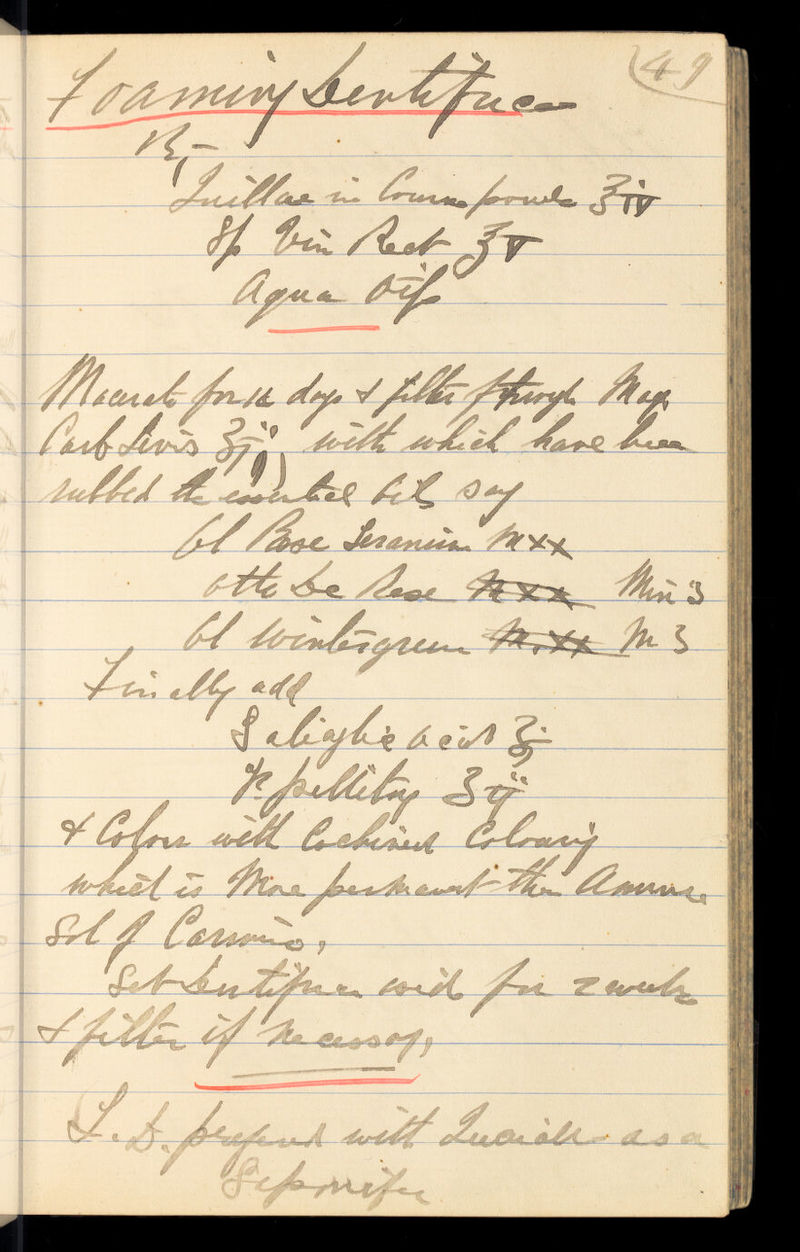 49
Foaming Dentifrice
Rx –
Quillae in Coarse powder ℥iv
Sp Vin Rect ℥v
Aqua Oi
Macerate for 14 days & filter through Mag
Carb Levis ʒij, with which have been
rubbed the essential Oils say
Ol Rose Geranium ♏xx
Otto De Rose Min 3
Ol Wintergreen M 3
Finally add
Salicylic Acid ʒj
Tr pellitory ʒij
& Colour with Cochineal Colouring
which is More permanent than Ammon
Sol of Carmine,
Set Dentifrice aside for 2 weeks
& filter if necessary,
L. D. prepared with as a
Saponifier